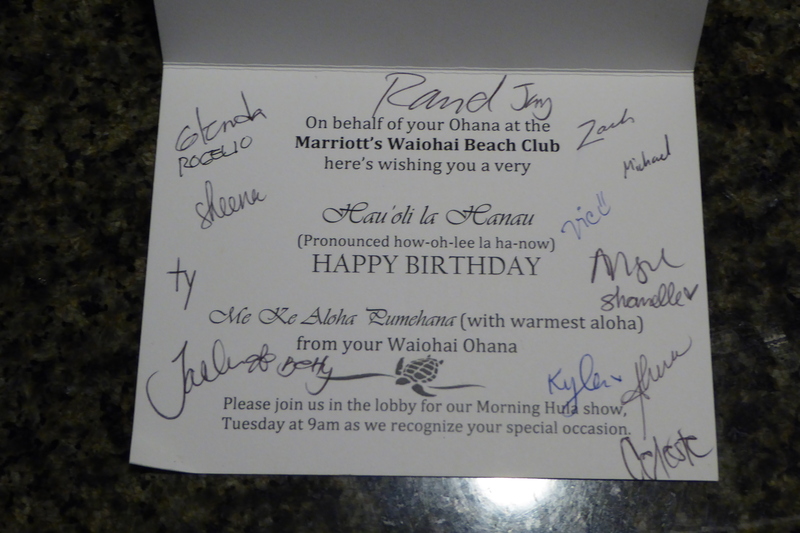 Rand Jay
Glenda
ROGELIO
Zach
Michael
On behalf of your Ohana at the
Marriott's Waiohai Beach Club
here's wishing you a very
Sheena
Hau'oli la Hanau
(Pronounced how-oh-lee la ha-now)
HAPPY BIRTHDAY
ty
Shanelle
Me Ke Aloha Pumehana (with warmest aloha)
from your Waiohai Ohana
Betty
Kylen
Please join us in the lobby for our Morning Hula show,
Tuesday at 9am as we recognize your special occasion.
Celeste